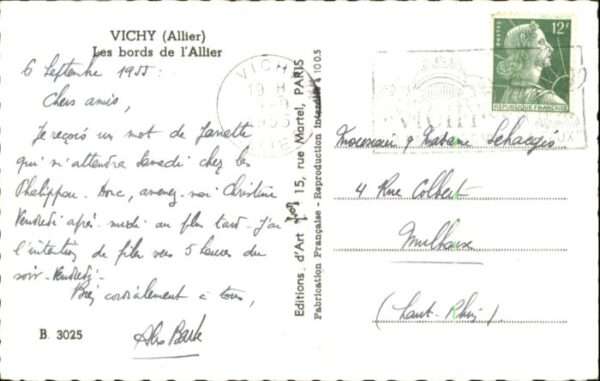 VICHY (Allier)
Les bords de l'Allier
6 Septembre 1955:
Chers amis,
Je reçois un mot de Janette
qui m'attendra Samedi chez les
Phalippou. Donc, amenez-moi Christine
Vendredi après-midi au plus tard. J'ai
l'intention de filer vers 5 heures du
soir. Vendredi.
Bien cordialement à tous,
B. 3025
Editions d'Art YVON 15, rue Martel, PARIS
Fabrication Française - Reproduction Interdite 4 1005
VICHY
POSTES
12F
REPUBLIQUE FRANÇAISE
Monsieur & Madame
4 Rue Colbert
Mulhouse
(Haut-Rhin).